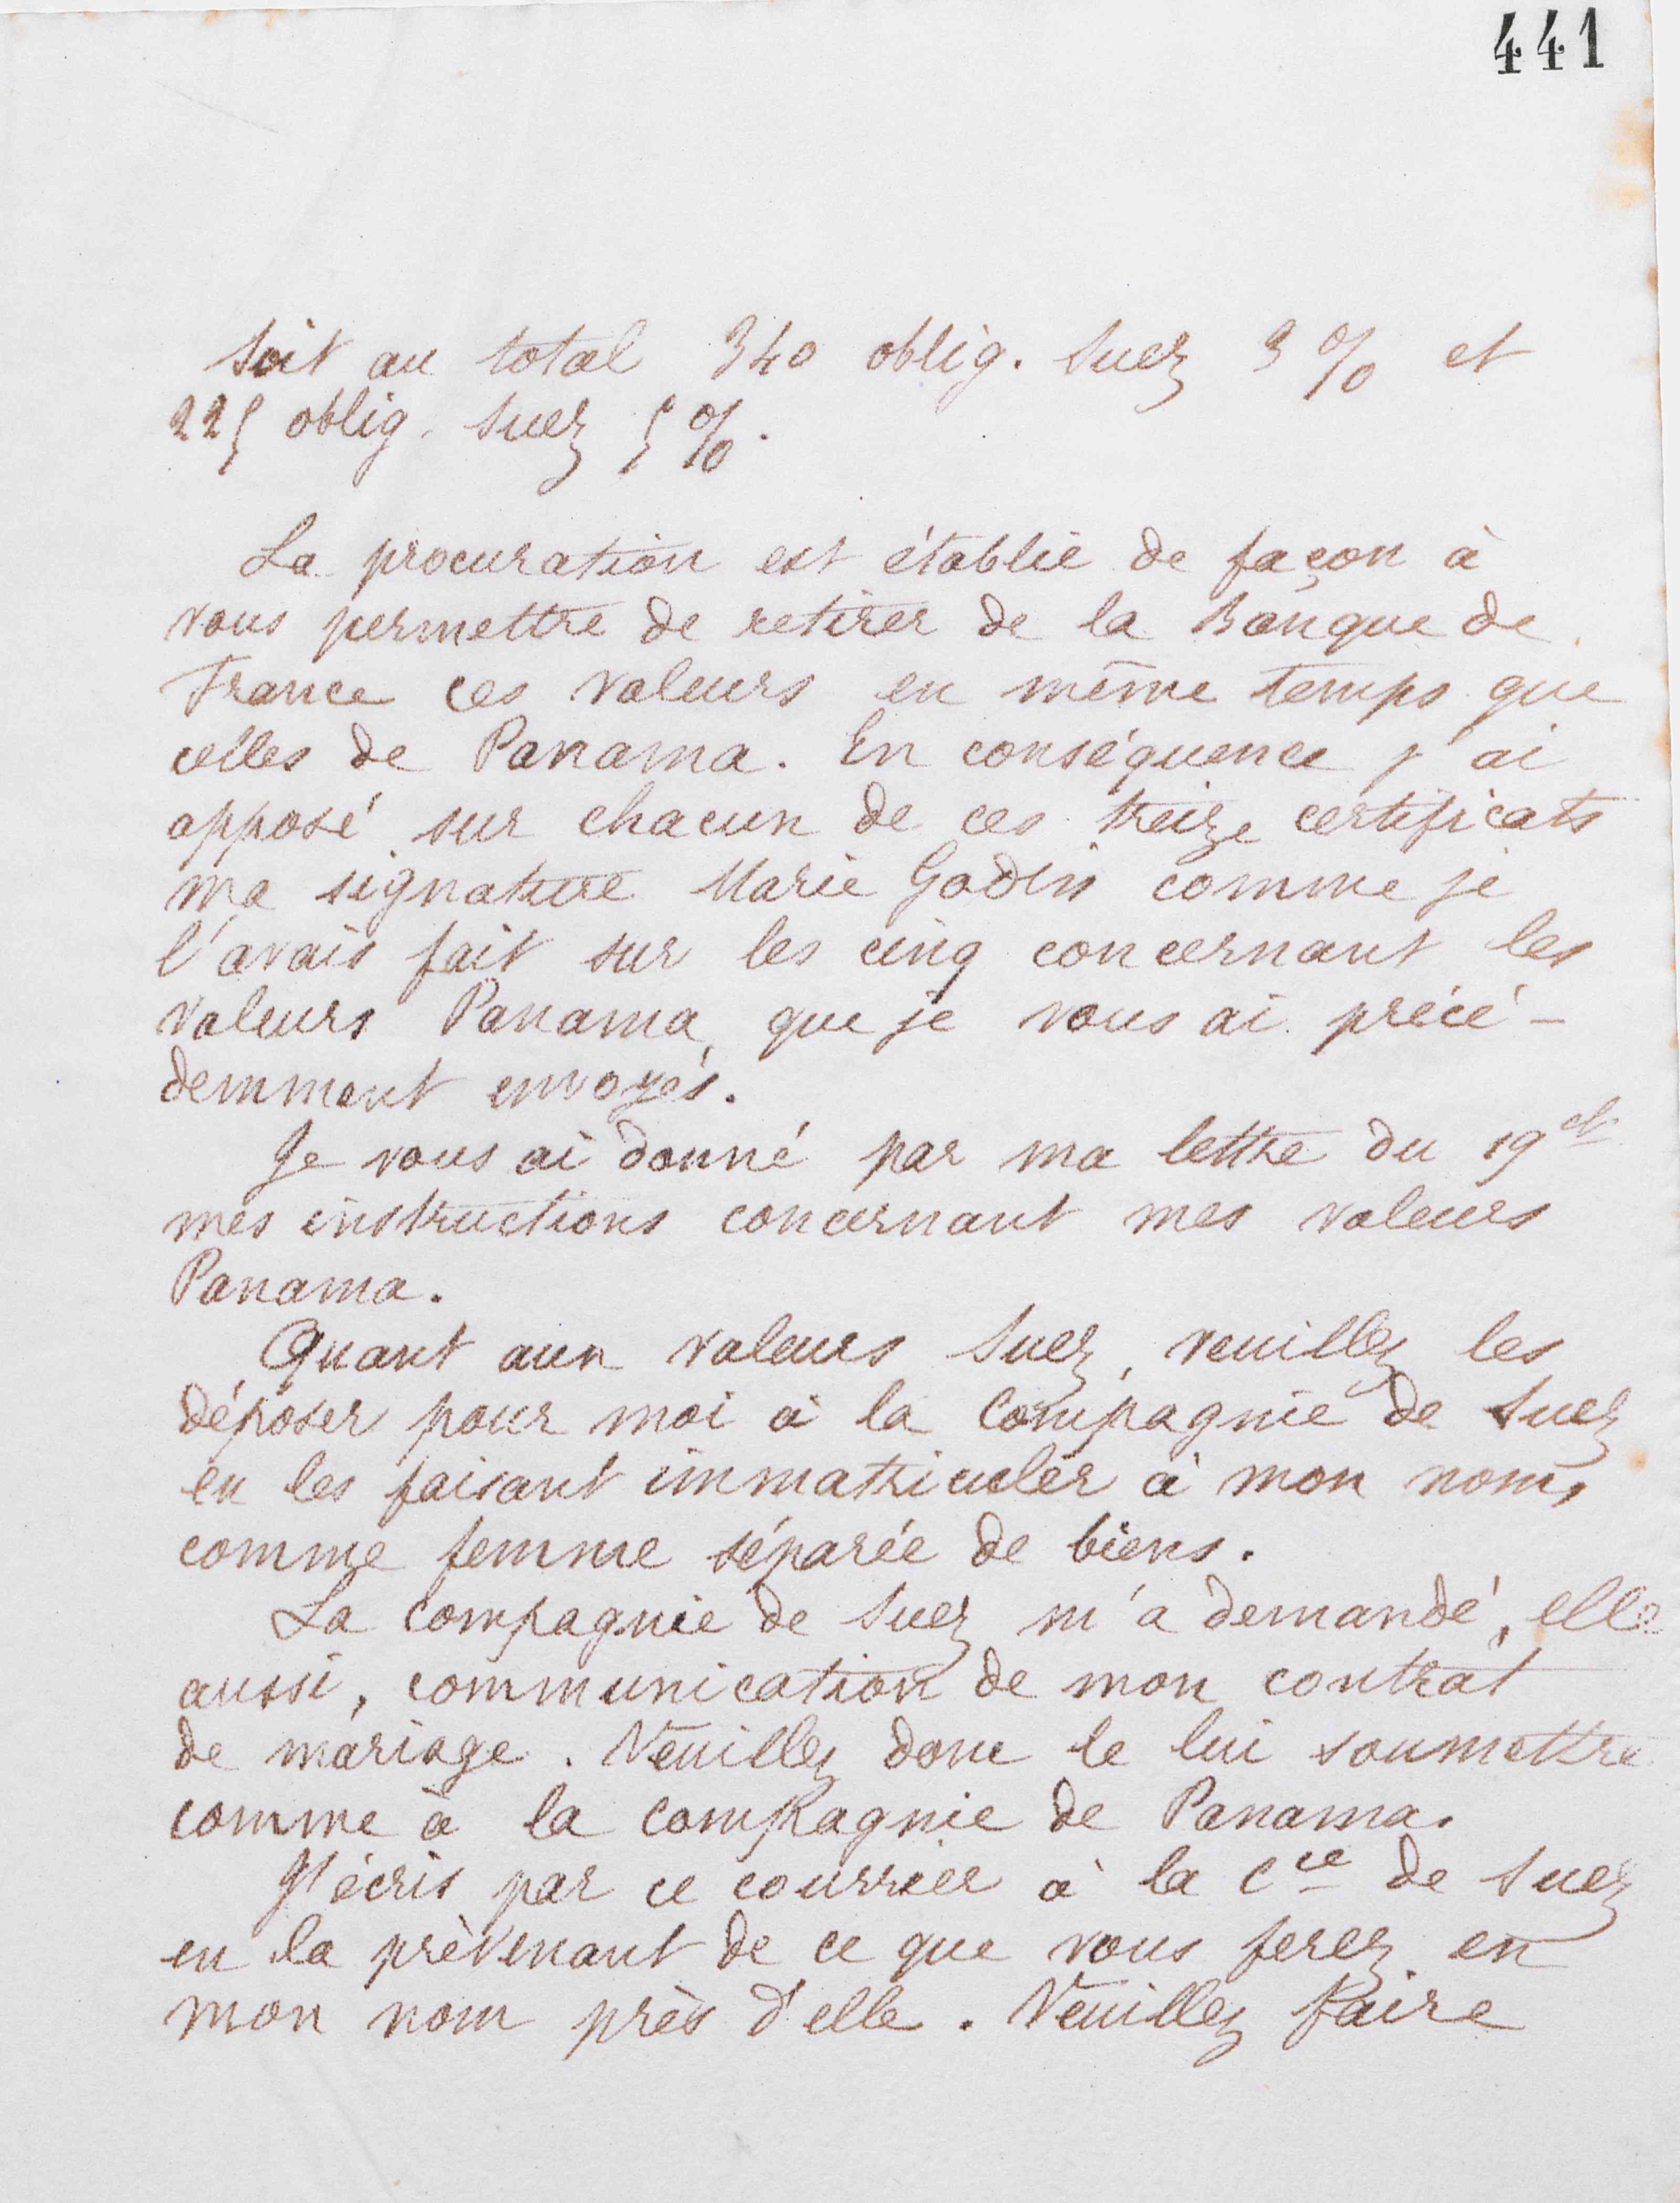 441
Soit au total 340 oblig. Suez 3 % et
225 oblig. Suez 5 %.
La procuration est établie de façon à
vous permettre de retirer de la Banque de
France ces valeurs en même temps que
celles de Panama. En conséquence j'ai
apposé sur chacun de ces treize certificats
ma signature Marie Godin comme je
l'avais fait sur les cinq concernant les
valeurs Panama, que je vous ai précé-
demment envoyés.
Je vous ai donné par ma lettre du 19 ct
mes instructions concernant mes valeurs
Panama.
Quant aux valeurs Suez, veuillez les
déposer pour moi à la Compagnie de Suez
en les faisant immatriculer à mon nom,
comme femme séparée de biens.
La Compagnie de Suez m'a demandé, elle
aussi, communication de mon contrat
de mariage. Veuillez donc le lui soumettre
comme à la Compagnie de Panama.
J'écris par ce courrier à la Cie de Suez
en la prévenant de ce que vous ferez en
mon nom près d'elle. Veuillez faire